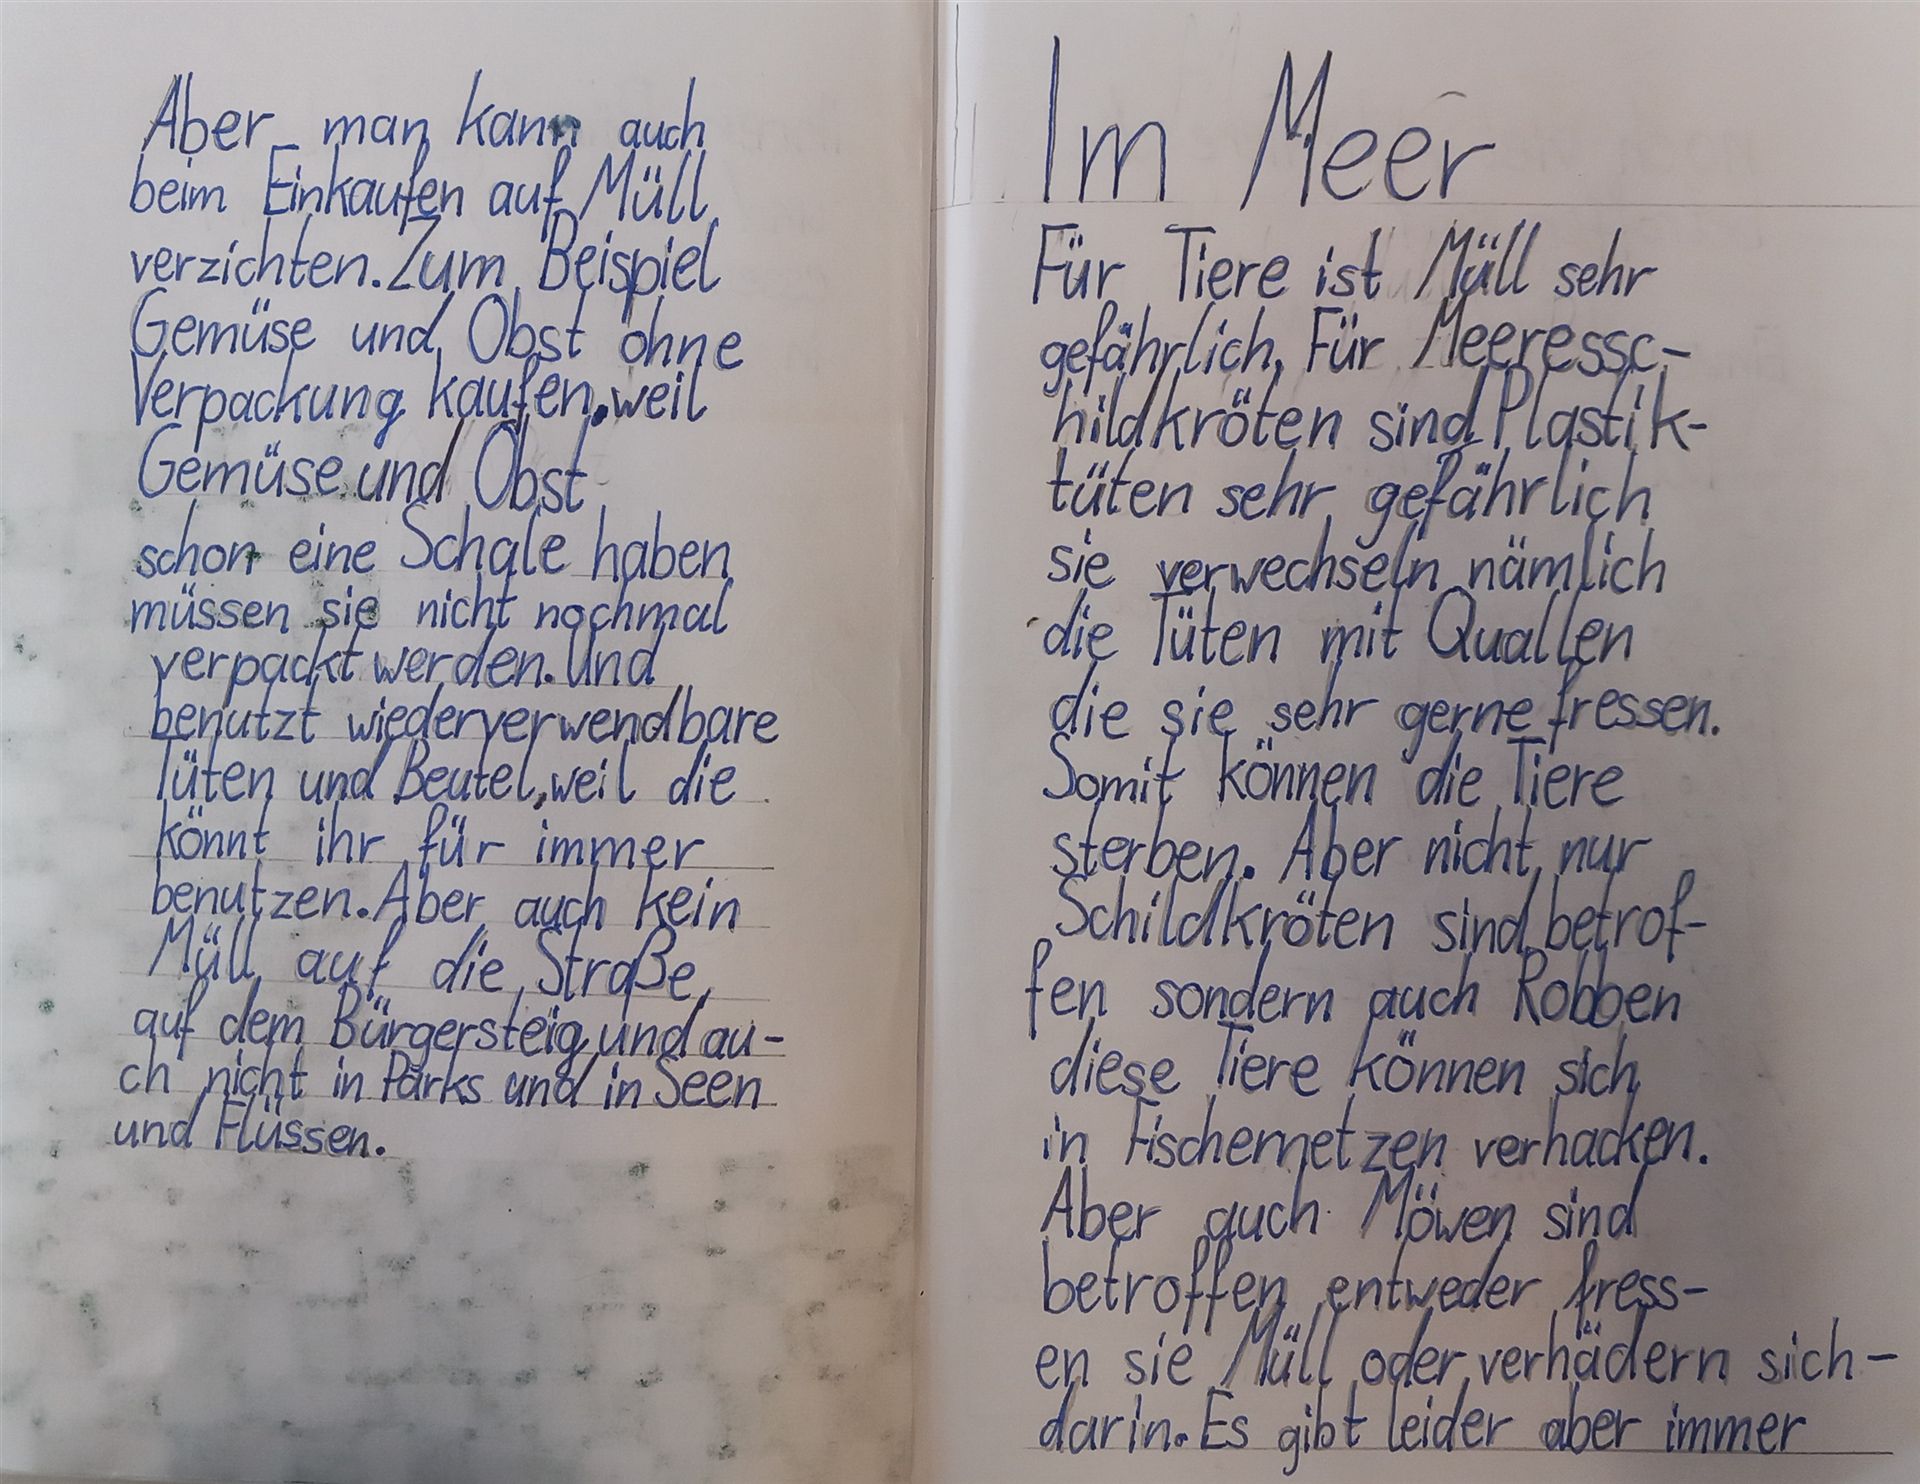 Aber man kann auch
beim Einkaufen auf Müll
verzichten. Zum Beispiel
Gemüse und Obst ohne
Verpackung kaufen, weil
Gemüse und Obst
schon eine Schale haben
müssen sie nicht nochmal
verpackt werden. Und
benutzt wiederverwendbare
Tüten und Beutel, weil die
könnt ihr für immer
benutzen. Aber auch kein
Müll auf die Straße,
auf dem Bürgersteig und au-
ch nicht in Parks und in Seen
und Flüssen.
Im Meer
Für Tiere ist Müll sehr
gefährlich. Für Meeressc-
hildkröten sind Plastik-
tüten sehr gefährlich
sie verwechseln nämlich
die Tüten mit Quallen
die sie sehr gerne fressen.
Somit können die Tiere
sterben. Aber nicht nur
Schildkröten sind betrof-
fen sondern auch Robben
diese Tiere können sich
in Fischernetzen verhacken.
Aber auch Möwen sind
betroffen entweder fress-
en sie Müll oder verhädern sich-
darin. Es gibt leider aber immer